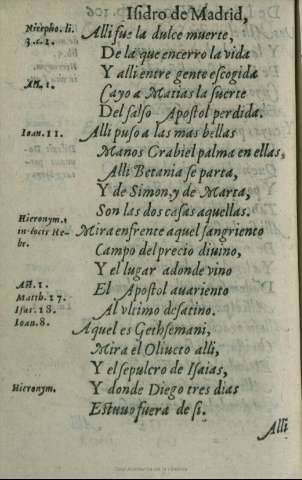 Isidro de Madrid,
Nicepho. li.
3. c. 1.
Alli fue la dulce muerte,
De la que encerro la vida
Y alli entre gente escogida
Act. 1.
Cayo a Matias la suerte
Del falso Apostol perdida.
Ioan. 11.
Alli puso a las mas bellas
Manos Grabiel palma en ellas,
Alli Betania se parta,
Y de Simon, y de Marta,
Son las dos casas aquellas.
Hieronym.,
in locis He-
br.
Mira enfrente aquel sangriento
Campo del precio diuino,
Y el lugar adonde vino
Act. 1.
El Apostol auariento
Matth. 17.
Al vltimo desatino.
Isai. 18.
Ioan. 8.
Aquel es Gethsemani,
Mira el Oliueto alli,
Y el sepulcro de Isaias,
Hieronym.
Y donde Diego tres dias
Estuuo fuera de si.
Alli